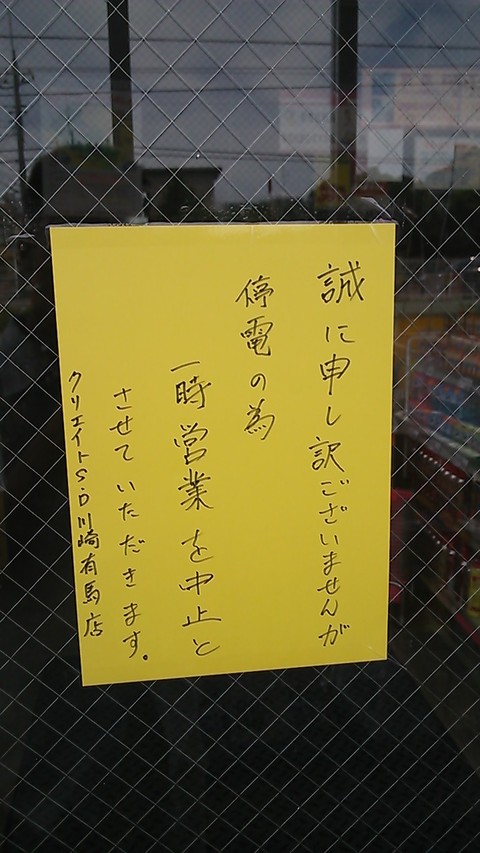 誠に申し訳ございませんが
停電の為
一時営業を中止と
させていただきます。
クリエイトS・D川崎有馬店